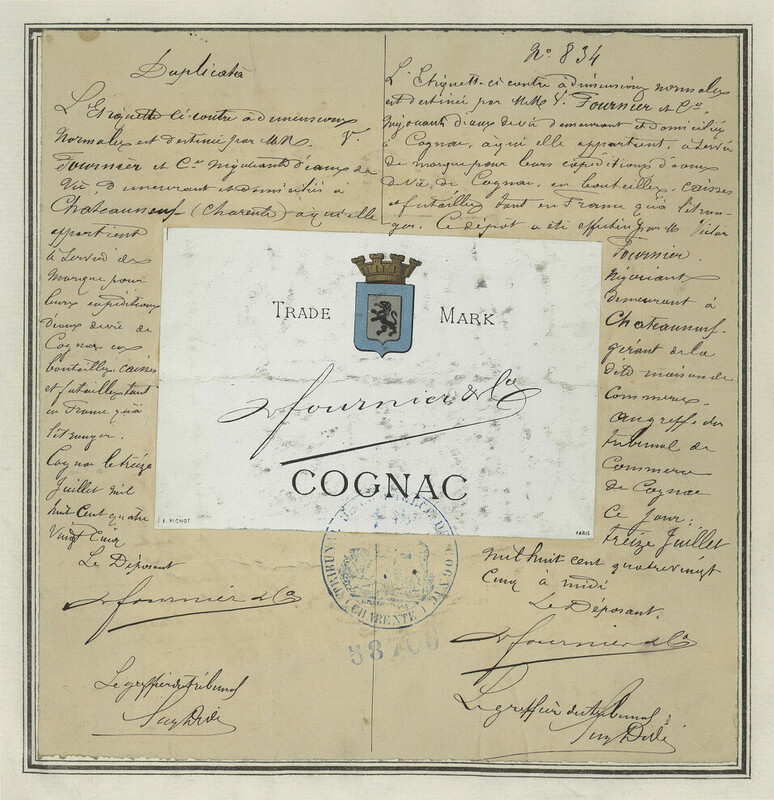 Duplicata
L'Etiquette ci-contre à dimensions
normales est destinée par MM. V.
Fournier et Cie Négociants d'eaux de
Vie, demeurant et domiciliés à
Chateauneuf (Charente) à qui elle
appartient
à Servir de
Marque pour
leurs expéditions
d'eaux de vie de
Cognac en
bouteilles, caisses
et futailles tant
en France qu'à
l'étranger.
Cognac le treize
Juillet mil
huit Cent quatre
Vingt Cinq
Le Déposant
V fournier & Co
Le greffier du tribunal
No 834
L'Etiquette ci-contre à dimensions normales
est destinée par MM. V. Fournier et Cie
Négociants d'eaux de vie demeurant et domiciliés
à Cognac, à qui elle appartient, à servir
de marque pour leurs expéditions d'eaux
de vie de Cognac, en bouteilles, caisses
et futailles tant en France qu'à l'étran-
ger. Ce dépôt a été effectué par M. Victor
Fournier
Négociant
demeurant à
Chateauneuf
gérant de la
dite maison de
Commerce
au greffe du
tribunal de
Commerce
de Cognac
Ce jour,
treize Juillet
mil huit cent quatre vingt
Cinq à midi
Le Déposant.
V fournier & Co
Le greffier du tribunal
TRADE MARK
V fournier & Co
COGNAC
PARIS
TRIBUNAL DE COGNAC
(CHARENTE)